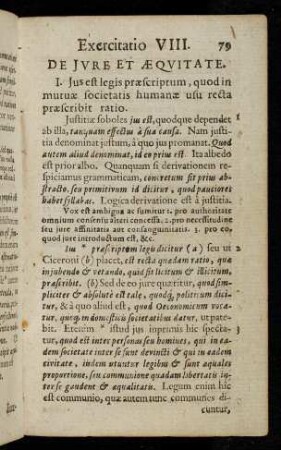 Exercitatio VIII. 79
DE JVRE ET ÆQVITATE.
I. Jus est legis præscriptum, quod in
mutuæ societatis humanæ usu recta
præscribit ratio.
Justitiæ soboles jus est, quodque dependet
ab illa, tanquam effectus à sua causa. Nam justi-
tia denominat justum, à quo jus promanat. Quod
autem aliud denominat, id eo prius est. Ita albedo
est prior albo. Quanquam si derivationem res-
piciamus grammaticam, concretum sit prius ab-
stracto, seu primitivum id dicitur, quod pauciores
habet syllabas. Logica derivatione est à justitia.
Vox est ambigua ac sumitur 1. pro authoritate
omnium consensu alteri concessa, 2. pro necessitudine
seu jure affinitatis aut consanguinitatis. 3. pro eo,
quod jure introductum est, &c.
Jus præscriptum legis dicitur (a) seu ut 2.
Ciceroni (b) placet, est recta quædam ratio, quæ
in jubendo & vetando, quid sit licitum & illicitum,
præscribit. (b) Sed de eo jure quæritur, quod sim-
pliciter & absolutè est tale, quodq; politicum dici-
tur, & à quo aliud est, quod Oeconomicum voca-
tur, quòd in domesticis societatibus datur, ut pate-
bit. Etenim istud jus inprimis hic specta- 3
tur, quod est inter personas seu homines, qui in ea-
dem societate inter se sunt devincti & qui in eadem
civitate, iisdem utuntur legibus & sunt æquales
proportione, seu communione quadam libertatis in-
ter se gaudent & æqualitatis. Legum enim hic
est communio, quæ autem tunc communes di-
cuntur,